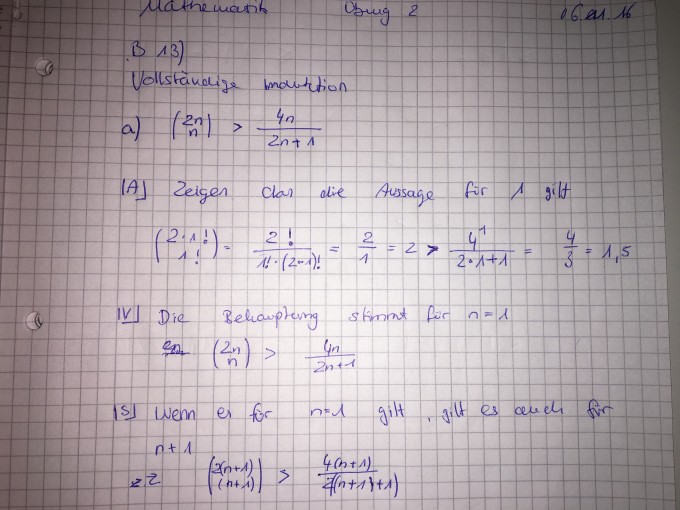 Mathematik Übung 2 06.01.16
B 13)
Vollständige Induktion
a) (2n n) > 4n / 2n+1
[A] Zeigen das die Aussage für 1 gilt
(2·1! 1!) = 2! / 1!·(2-1)! = 2/1 = 2 > 4^1 / 2·1+1 = 4/3 = 1,5
[V] Die Behauptung stimmt für n=1
(2n n) > 4n / 2n+1
[S] Wenn es für n=1 gilt, gilt es auch für
n+1
z.Z (2(n+1) (n+1)) > 4(n+1) / 2(n+1)+1)